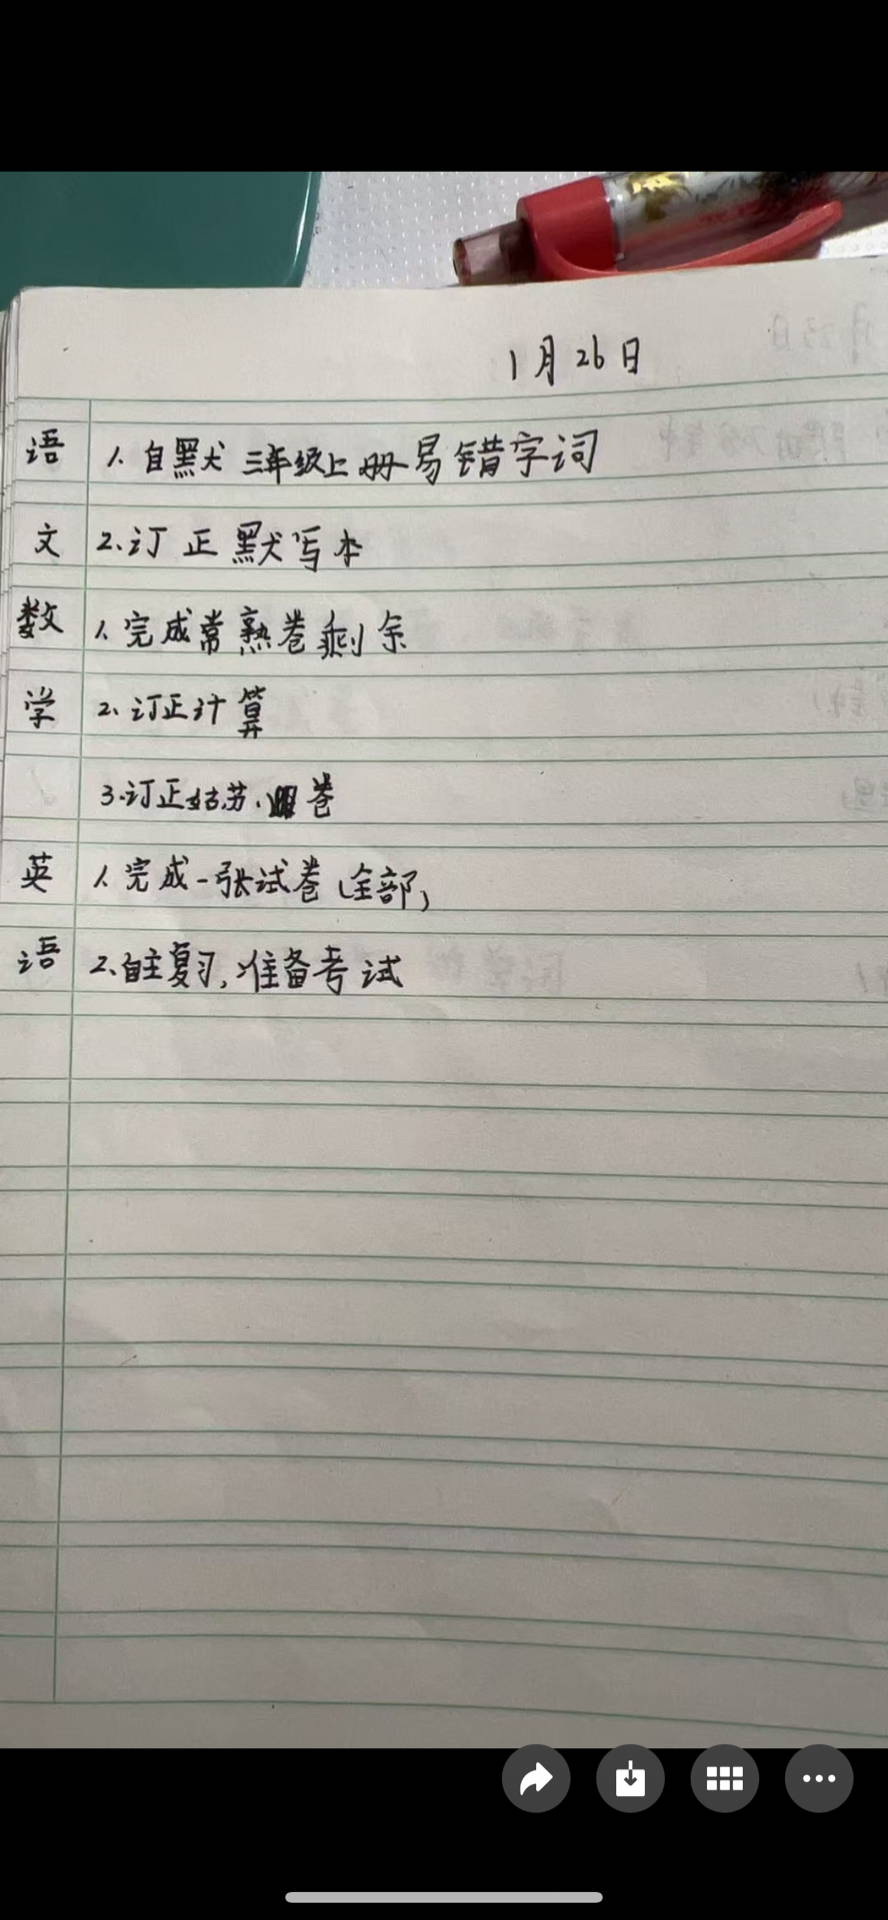 1月26日
语 1.自默三年级上册易错字词
文 2.订正默写本
数 1.完成常熟卷剩余
学 2.订正计算
3.订正姑苏、卷
英 1.完成一张试卷(全部)
语 2.自主复习,准备考试